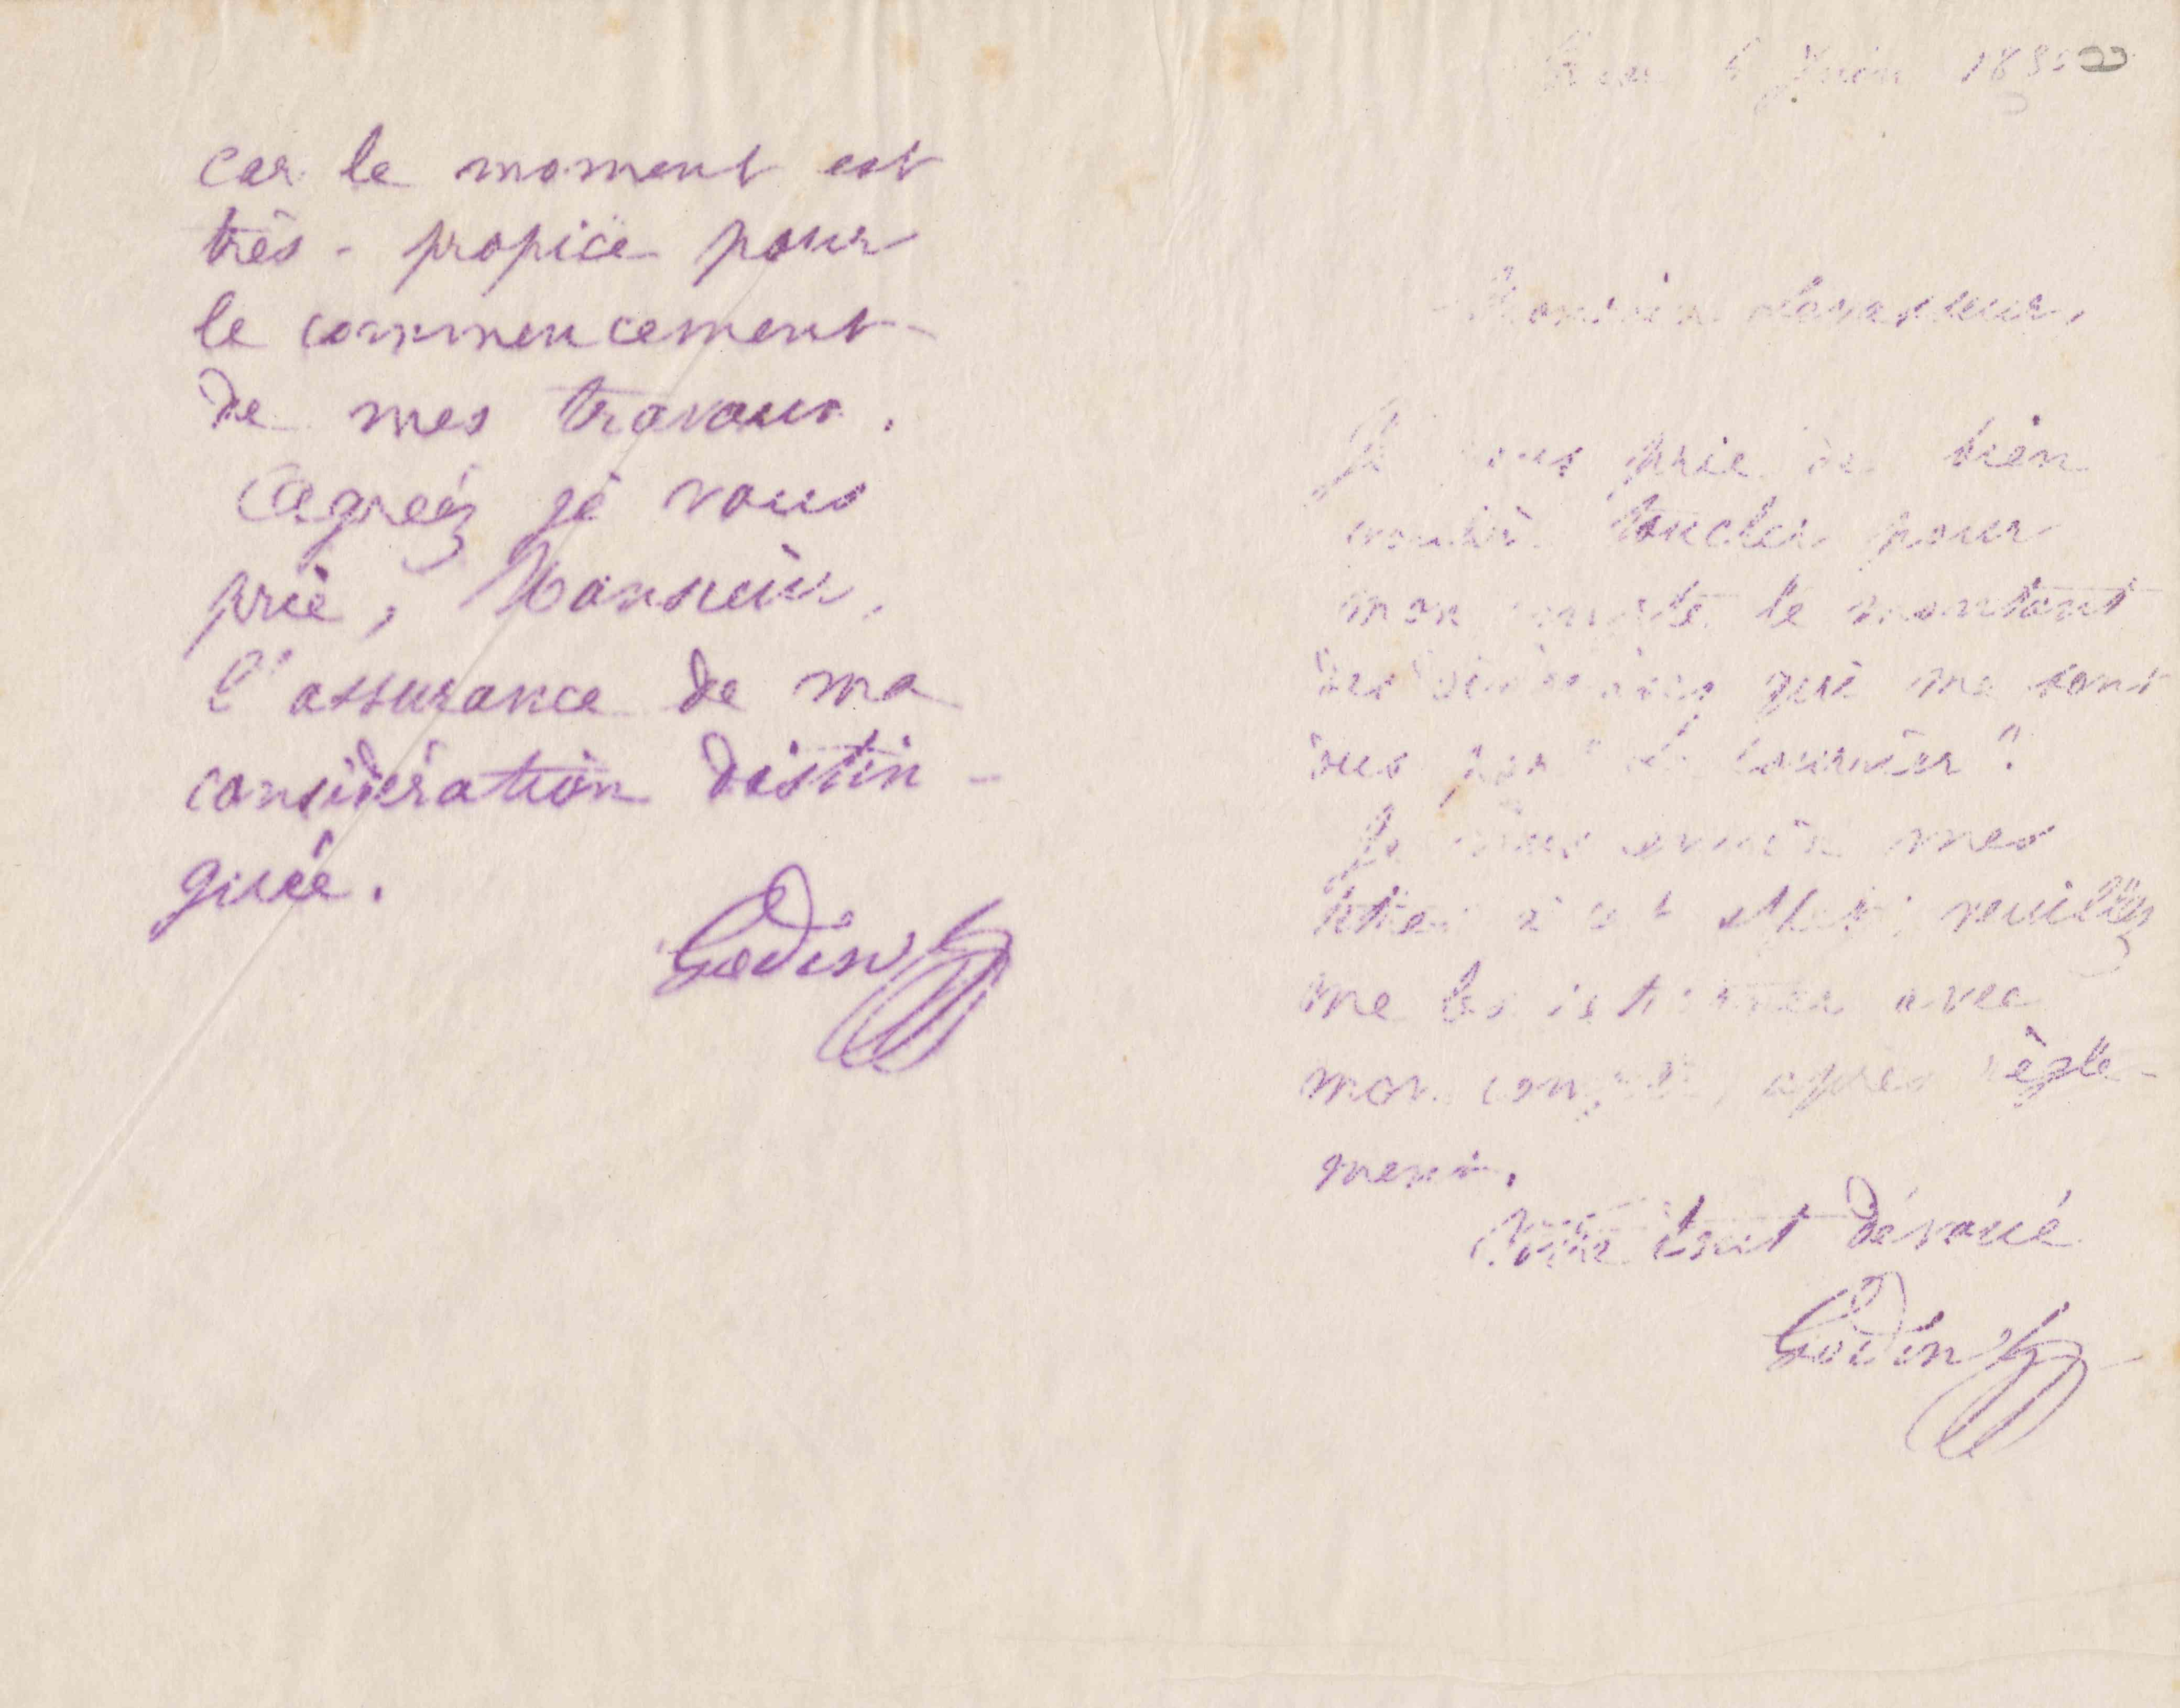 car le moment est
très-propice pour
le commencement
de mes travaux.
Agréez je vous
prie, Monsieur,
l'assurance de ma
considération distin-
guée.
Godin
Juin 188
Monsieur Levasseur,
Je vous prie de bien
vouloir toucher pour
mon compte le montant
des qui me sont
dus par "Le Courrier".
Je vous envoie mes
titres à cet effet; veuillez
me les retourner avec
mon compte, après règle-
ment.
Votre tout dévoué
Godin